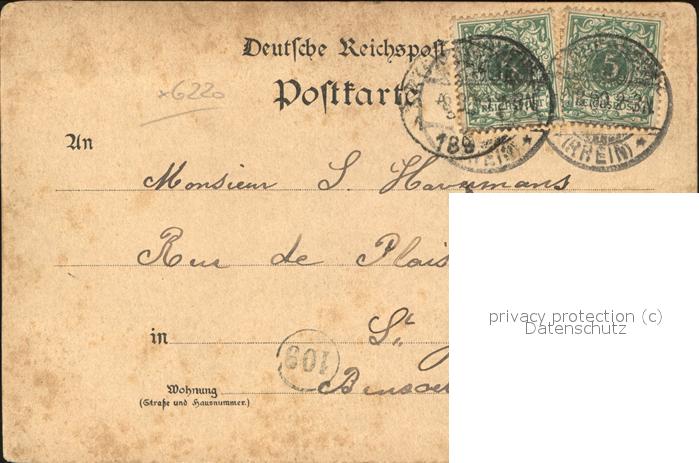 Deutsche Reichspost
Postkarte
x6220
5
5
REICHSPOST
REICHSPOST
189
(RHEIN)
(RHEIN)
An
Monsieur S.
Rue de Plais
in St
109
Wohnung
(Straße und Hausnummer.)
privacy protection (c)
Datenschutz